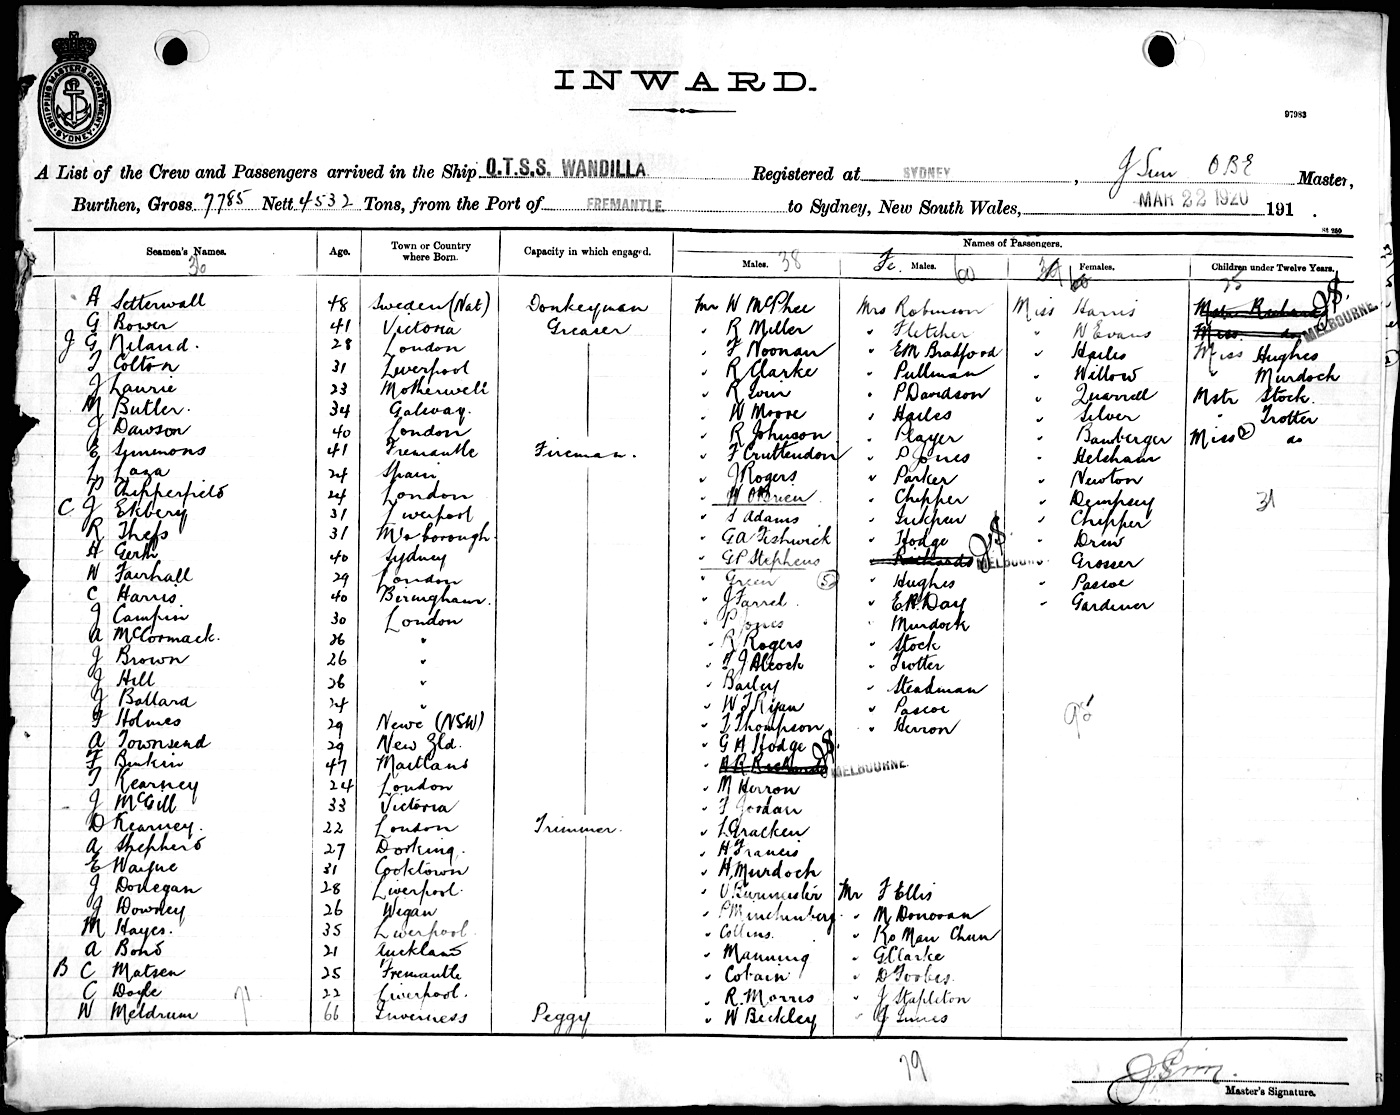 SHIPPING MASTERS DEPARTMENT SYDNEY
INWARD.
97983
A List of the Crew and Passengers arrived in the Ship Q.T.S.S. WANDILLA Registered at SYDNEY, OBE Master,
Burthen, Gross 7785 Nett 4532 Tons, from the Port of FREMANTLE to Sydney, New South Wales, MAR 22 1920 191 .
Seamen's Names. Age. Town or Country where Born. Capacity in which engaged. Names of Passengers.
Males. 38 Fe. Males. 60 Females. Children under Twelve Years.
A Setterwall 48 Sweden (Nat) Donkeyman Mr W McPhee Mrs Robinson Miss Harris
G Bower 41 Victoria Greaser " R Miller " Fletcher " N Evans MELBOURNE
J G Niland. 28 London " F Noonan " EM Bradford " Hailes Miss Hughes
T Colton 31 Liverpool " R Clarke " Pullman " Willow " Murdoch
J Laurie 23 Motherwell " R " P Davidson " Quarrell Mstr Stock.
M Butler. 34 Galway. " W Moore " Hailes " Silver " Trotter
J Dawson 40 London " R Johnson " Player " Bamberger Miss 2 do
E Simmons 41 Fremantle Fireman. " F Cruttendon " P Jones " Helsham
L Laza 24 Spain " J Rogers " Parker " Newton
Chipperfield 24 London " W OBrien " Chipper " Dempsey 31
C J Ekbery 31 Liverpool " S Adams " Inkpen " Chipper
R 31 M'borough. " GA Fishwick " Hodge " Drew
A Gerth 40 Sydney " GP Stephens " Richards MELBOURNE " Grosser
W Fairhall 29 London " Green " Hughes " Pascoe
C Harris 40 Birmingham. " J Farrel. " E.R. Day " Gardiner
J Campin 30 London " P Jones " Murdock
A McCormack. 26 " " R Rogers " Stock
J Brown 26 " " T J Alcock " Trotter
J Hill 26 " " Bailey " Steadman
J Ballard 24 " " W J Ryan " Pascoe
F Holmes 29 Newc (NSW) " T Thompson " Herron
A Townsend 29 New Zld. " G H Hodge
F 47 Maitland " A R Richards MELBOURNE
T Kearney 24 London " M Herron
J McGill 33 Victoria " F Jordan
D Kearney. 22 London Trimmer. " L Gracken
A Shepherd 27 Dorking. " H Francis
E Wayne 31 Cooktown " H. Murdoch
J Donegan 28 Liverpool. " Burmester Mr F Ellis
J Downey 26 Wigan " P Minchenberg. " M Donovan
M Hayes. 35 Liverpool. " Collins. " Ko Man Chun
A Bond 21 Auckland " Manning " G Clarke
B C Matsen 25 Fremantle " Cobain " D Foobes.
C Doyle 22 Liverpool. " R. Morris " J Stapleton
W Meldrum 71 66 Inverness Peggy " W Beckley " J
79
Master's Signature.